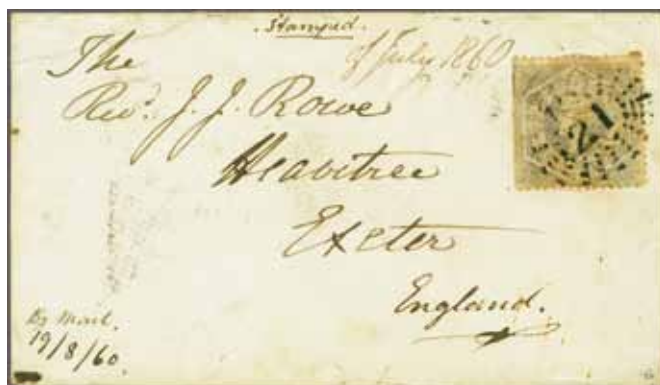 Stamped.
of July 1860
The
Revd. J. J. Rowe
Heavitree
Exeter
England.
By Mail.
19/8/60.
21